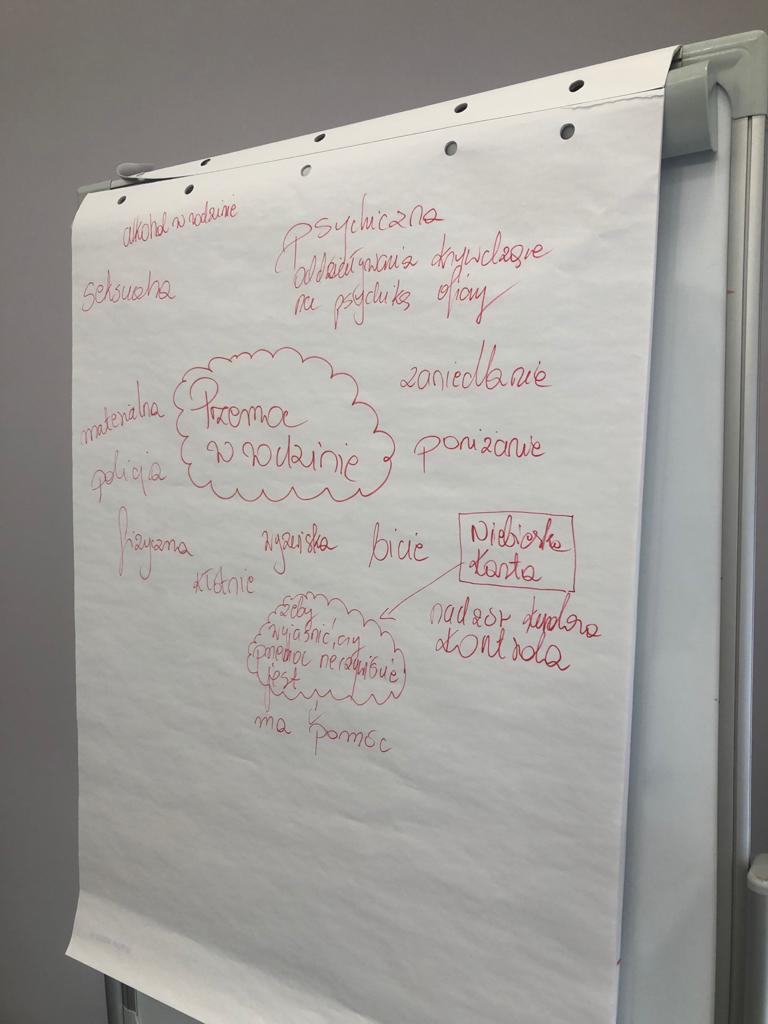 alkohol w rodzinie
psychiczna
oddziaływania krzywdzące
na psychikę ofiary
seksualna
zaniedbanie
materialna
Przemoc
w rodzinie
poniżanie
policja
fizyczna
wyzwiska
bicie
Niebieska
Karta
kłótnie
żeby
wyjaśnić, czy
przemoc rzeczywiście
jest
nadzór kuratora
kontrola
ma pomóc